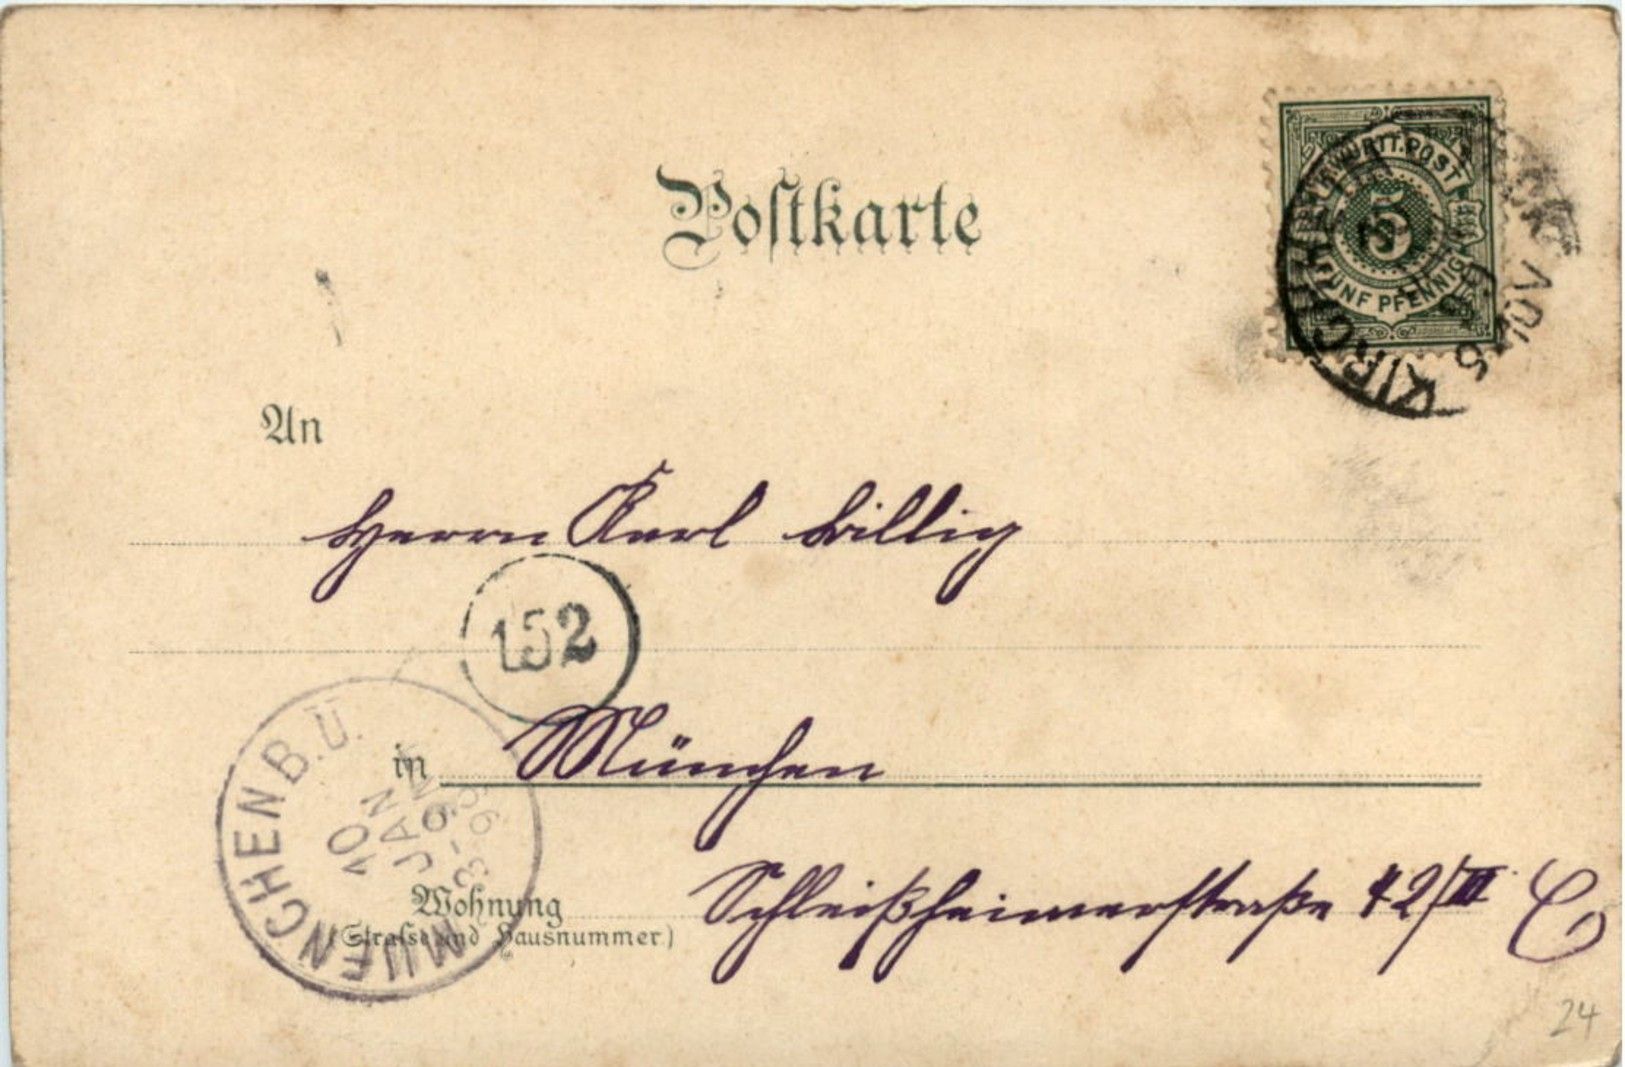 Postkarte
WÜRTT. POST
5
FÜNF PFENNIG
KIRCHHEIM
An
Herrn Karl Willig
152
in München
MUENCHEN B.Ü.
10
JAN
3-9
Wohnung
(Strasse und Hausnummer)
Schleißheimerstraße 42/III
24